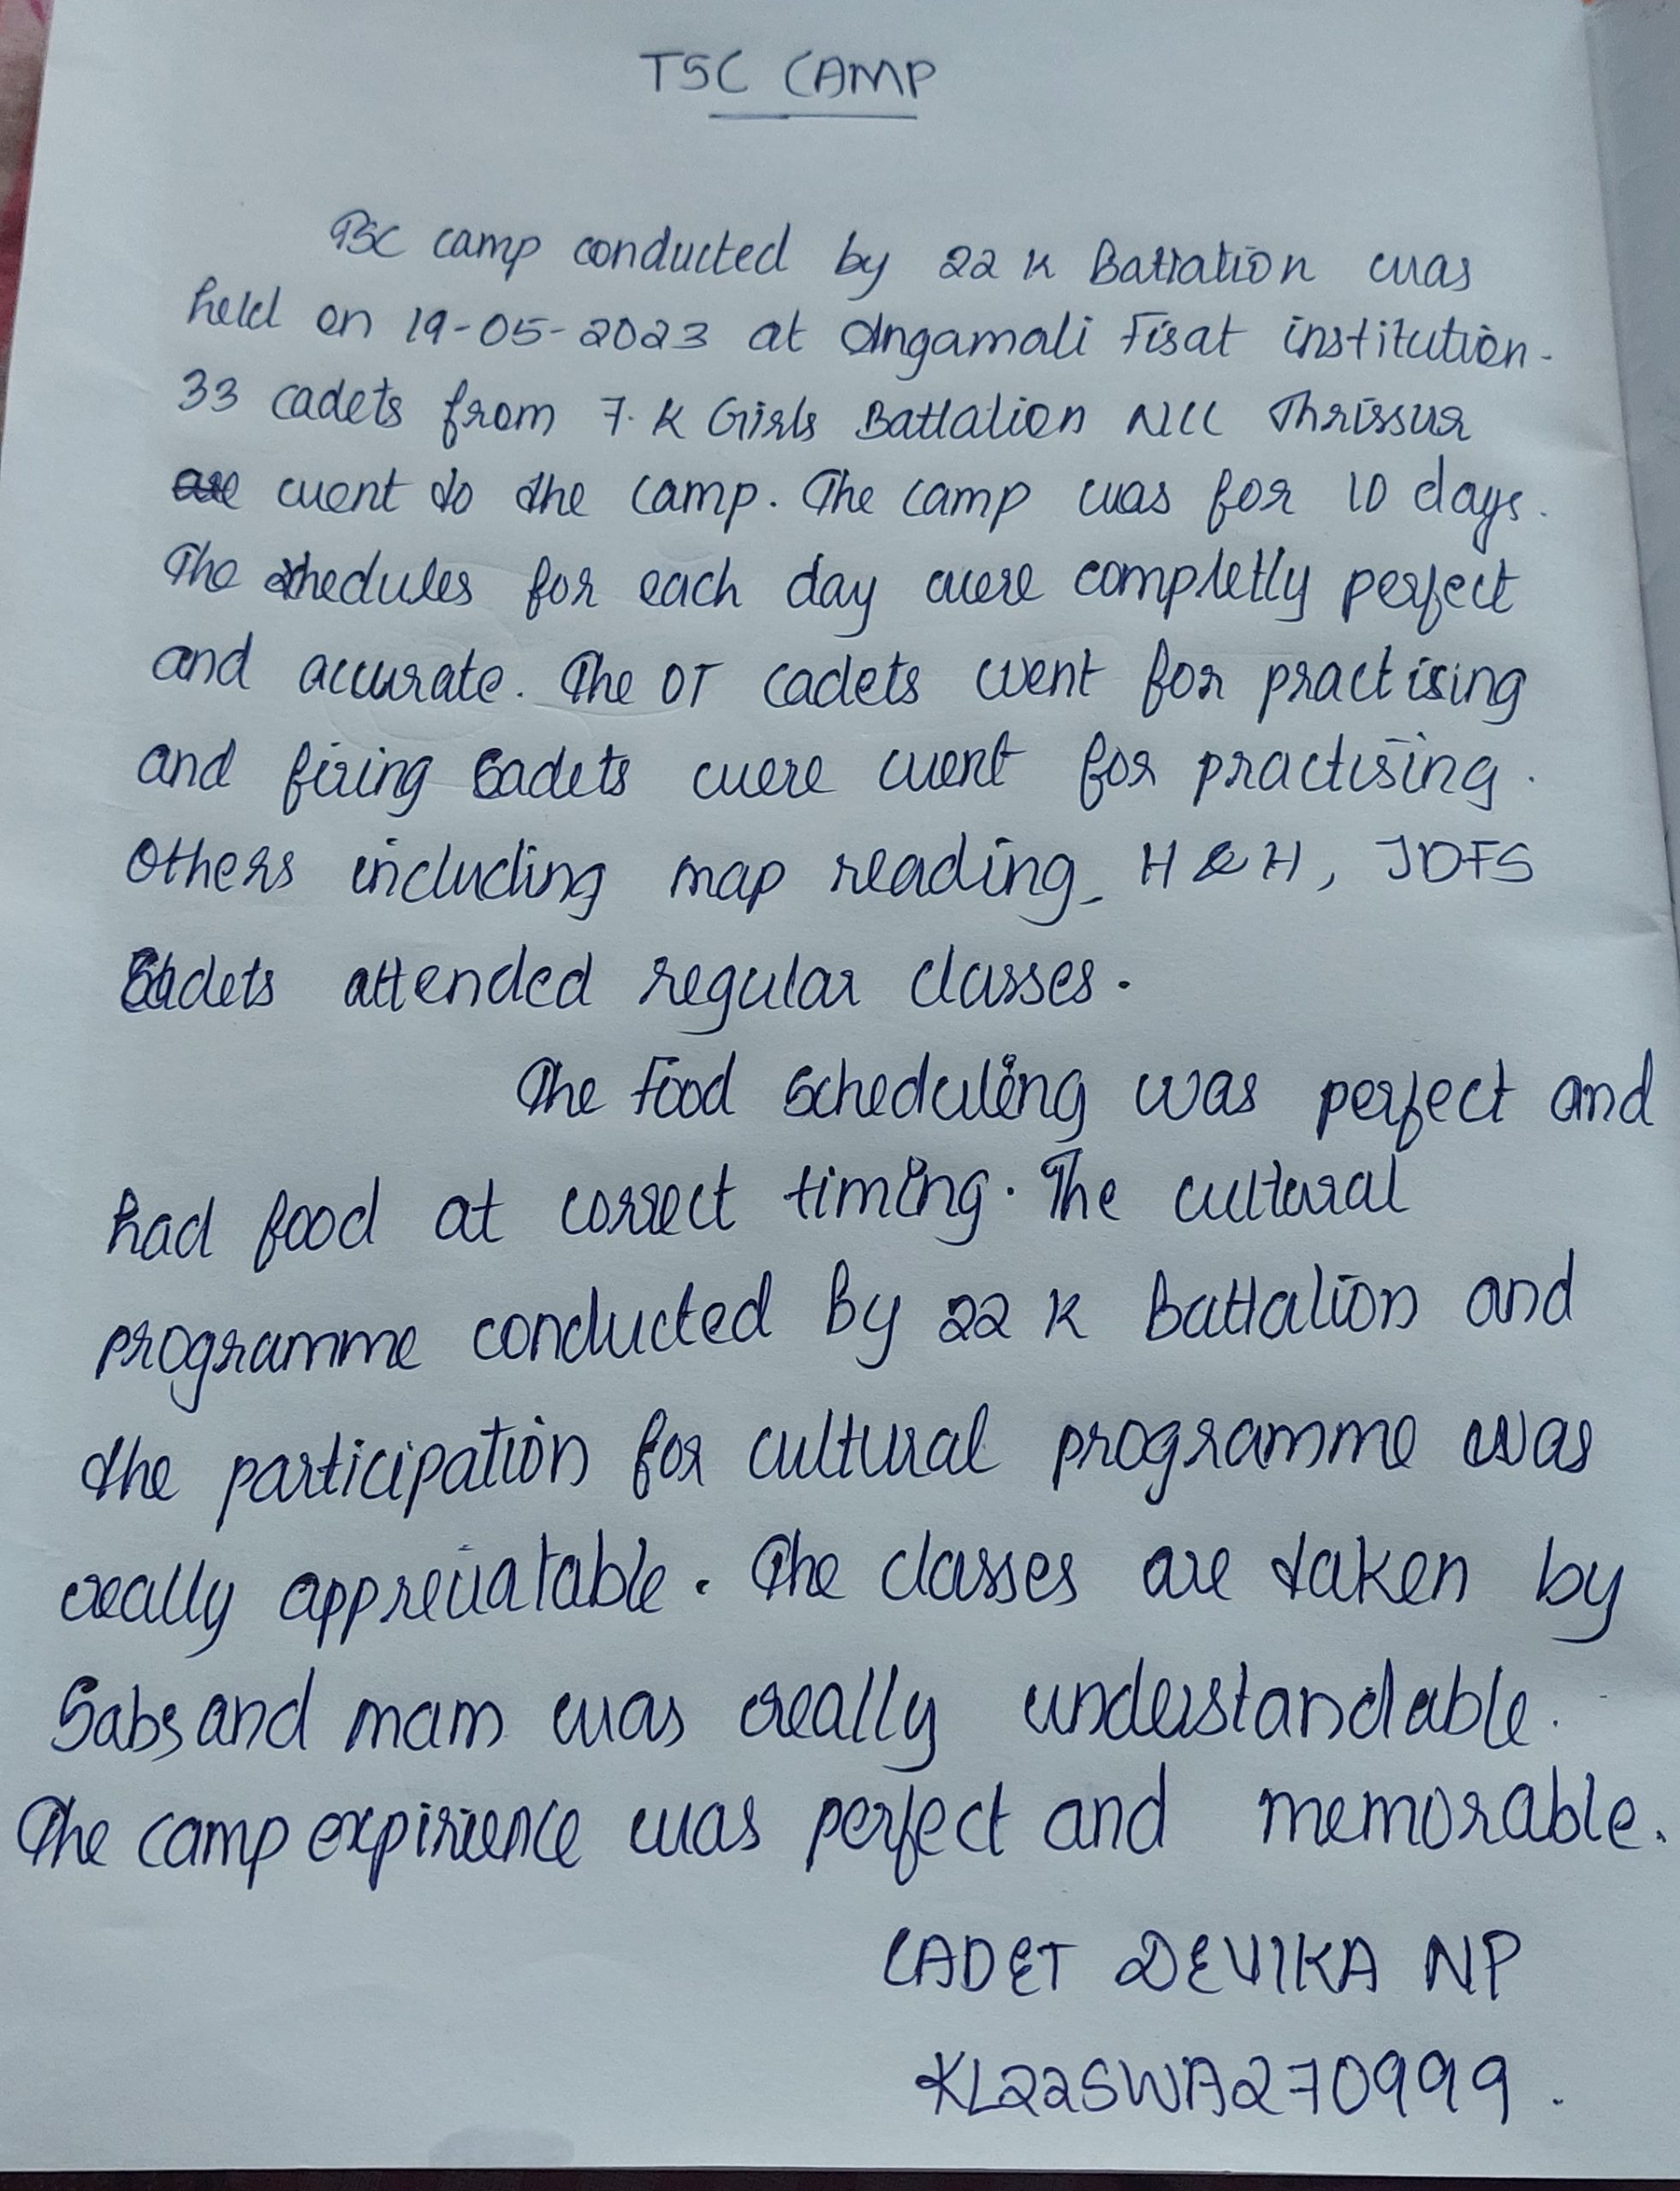 TSC CAMP
TSC camp conducted by 22 K Battalion was
held on 19-05-2023 at Angamali Fisat institution.
33 cadets from 7. K Girls Battalion NCC Thrissur
are went to the camp. The camp was for 10 days.
The schedules for each day were completly perfect
and accurate. The OT cadets went for practising
and firing Cadets were went for practising.
Others including map reading, H & H, JDFS
Cadets attended regular classes.
The Food scheduling was perfect and
had food at correct timing. The cultural
programme conducted by 22 K Battalion and
the participation for cultural programme was
really appreciatable. The classes are taken by
Sabs and mam was really understandable.
The camp expirience was perfect and memorable.
CADET DEVIKA NP
KL22SWA270999.